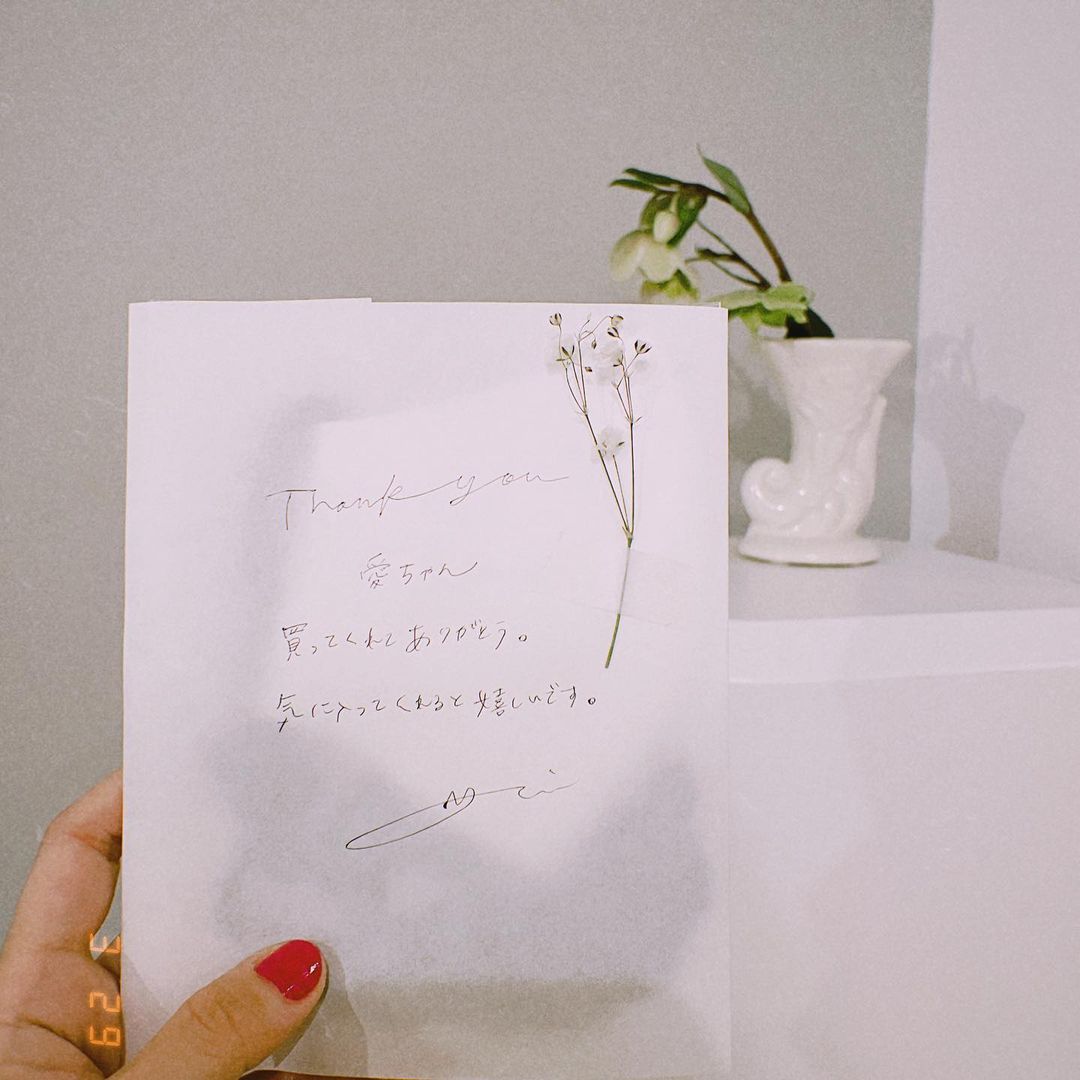 Thank you
愛ちゃん
買ってくれてありがとう。
気に入ってくれると嬉しいです。
3 29